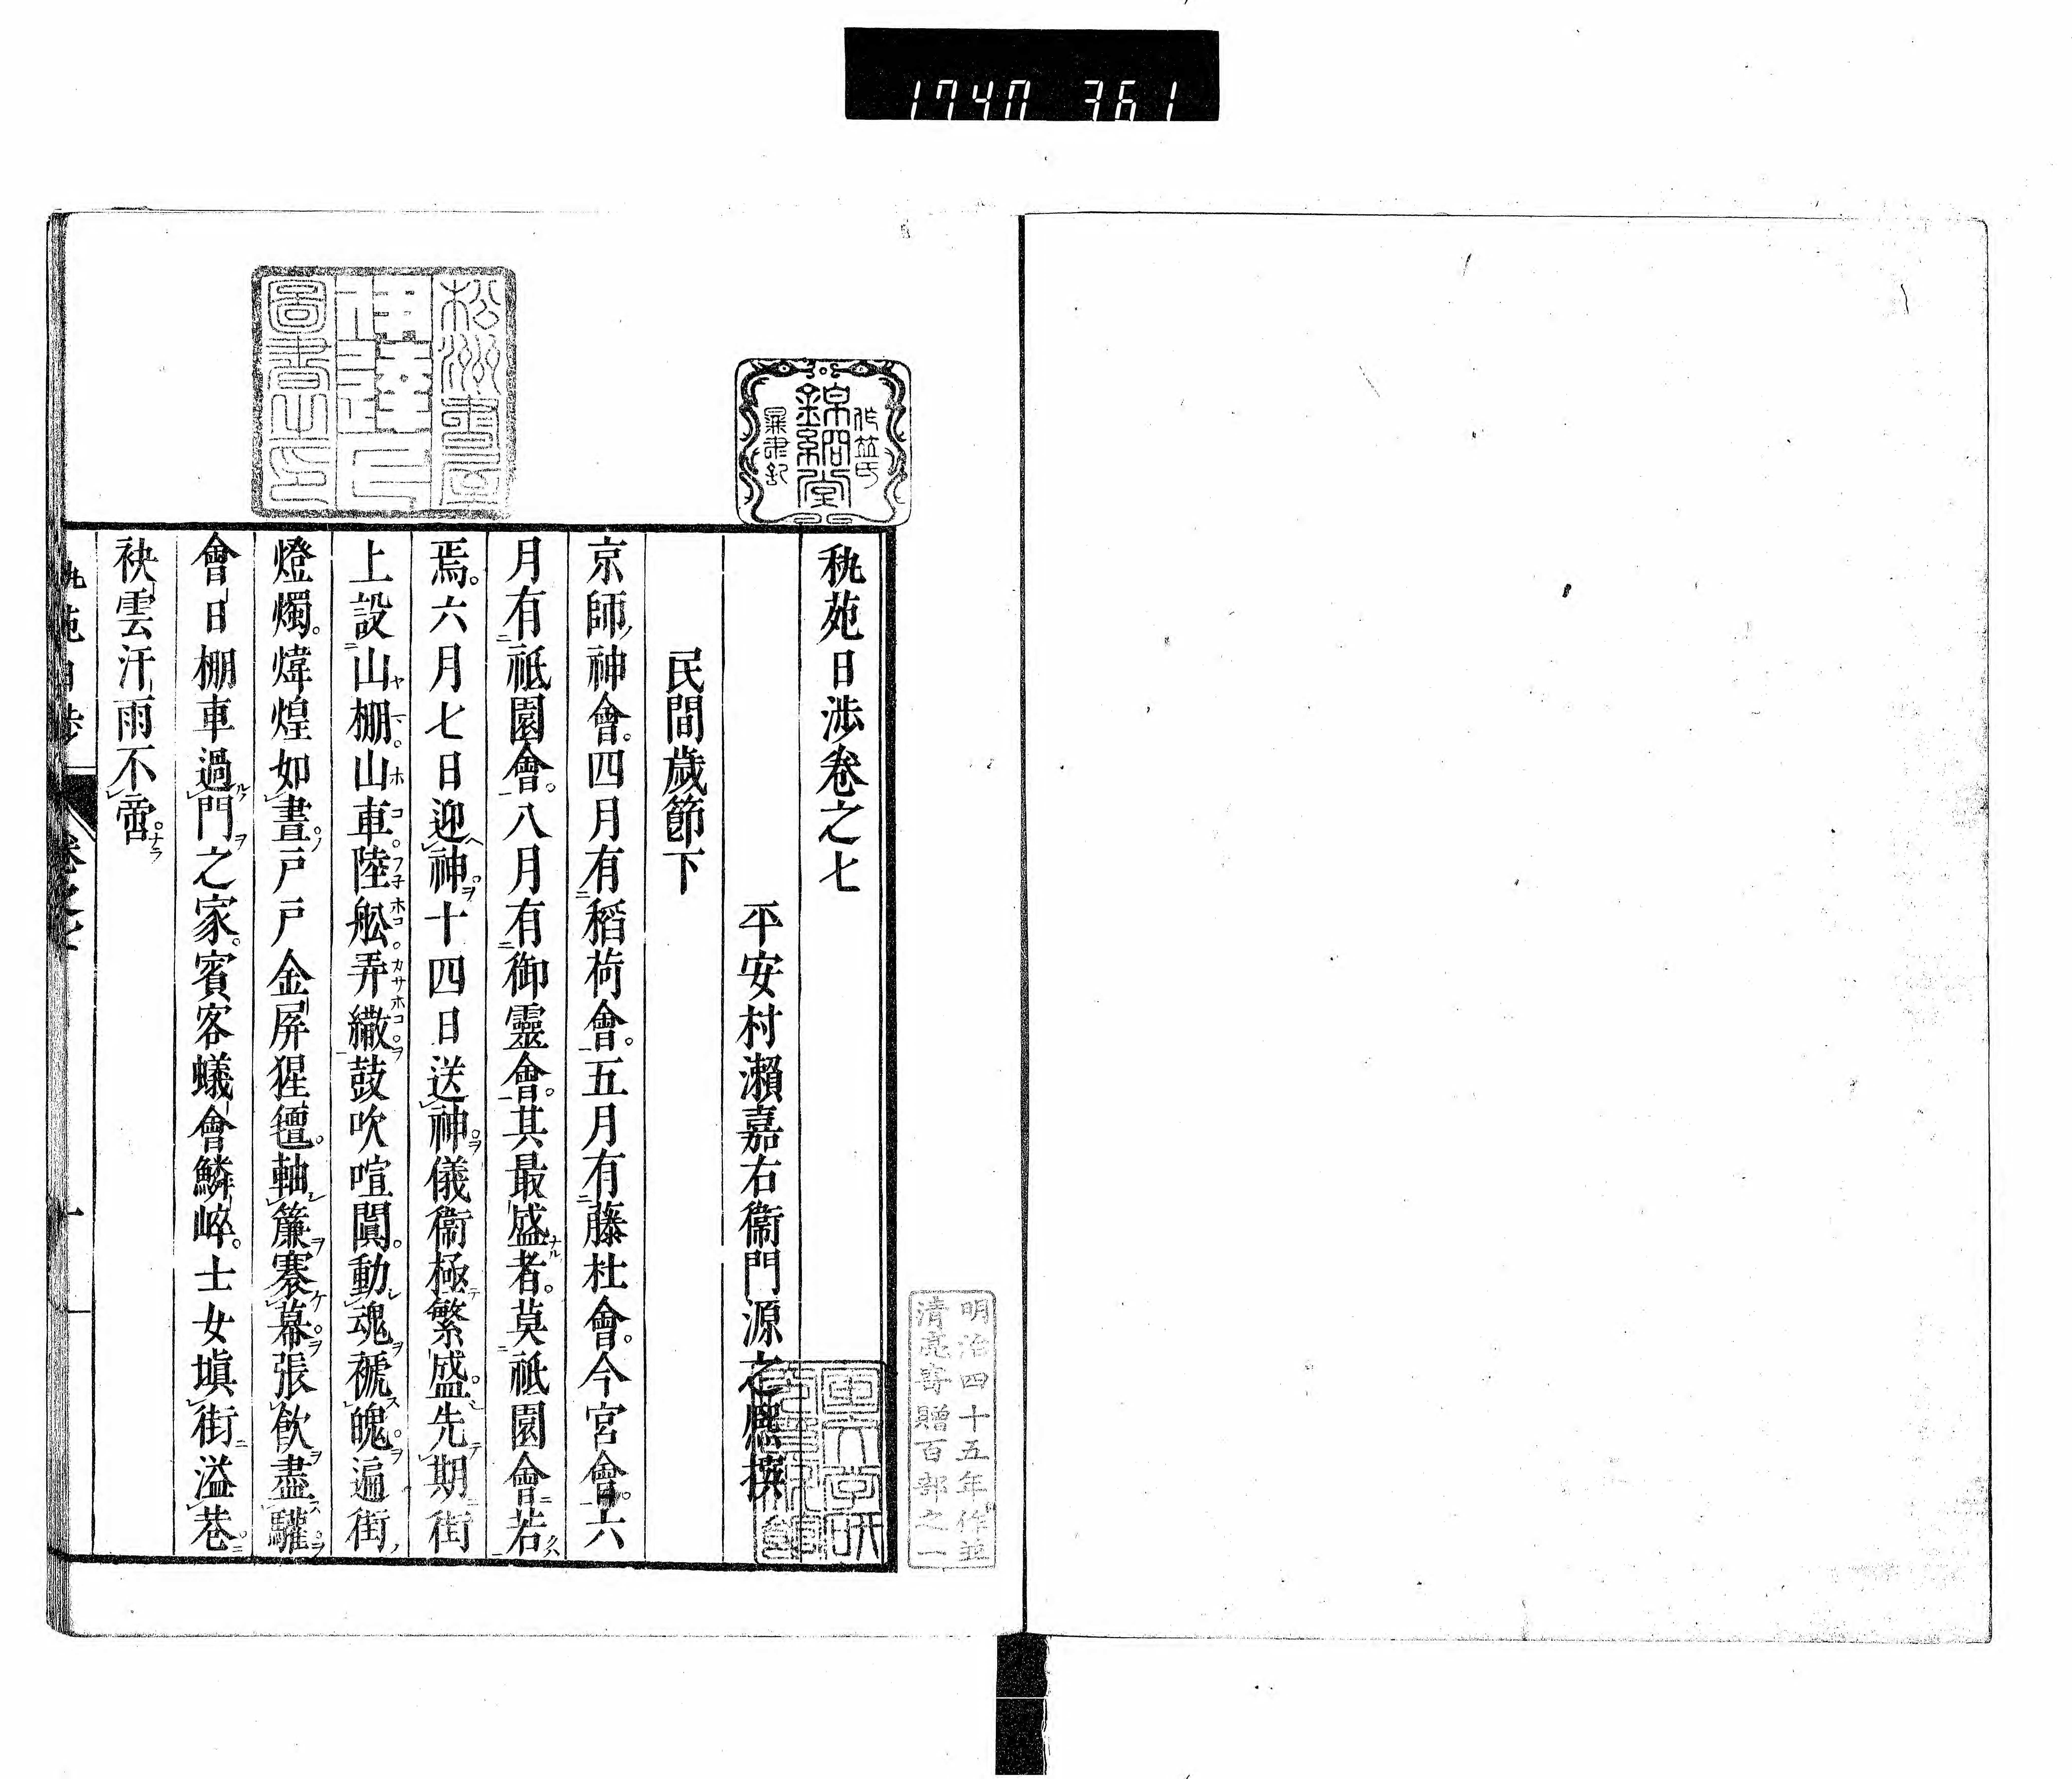 1740 361
秇苑日渉卷之七
平安村瀨嘉右衞門源之熈撰
民間歲節下
京師神會四月有稻荷會五月有藤杜會今宮會六
月有祇園會八月有御靈會其最盛者莫祇園會若
焉六月七日迎神十四日送神儀衞極繁盛先期街
上設山棚山車陸舩弄繖鼓吹喧闐動魂褫魄遍街
燈燭煒煌如晝戸戸金屏猩氊軸簾褰幕張飮盡驩
會日棚車過門之家賓客蟻會鱗崪士女塡街溢巷
袂雲汗雨不啻
卷之七
明治四十五年作並
清亮寄贈百部之一
松洲書屋
圖書之印
作並氏
錦絅堂